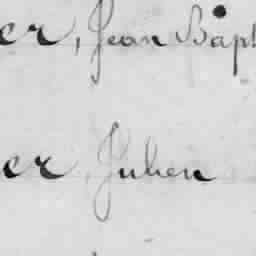 er, Jean Bapt
er, Julien